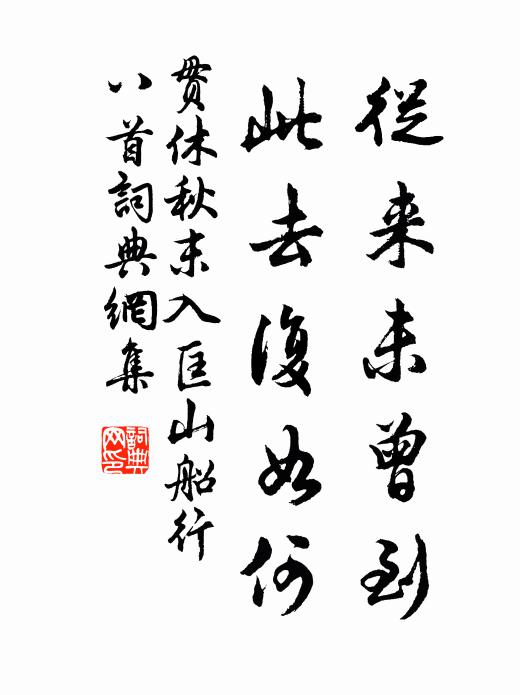 從来未曾到
此去復如何
貫休秋末入匡山船行
八首詞典網集
詞典
网印